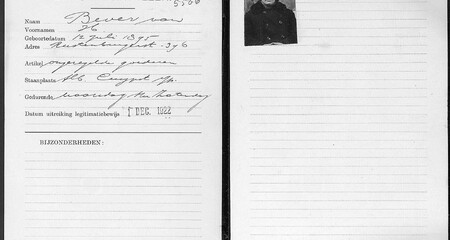 5500
Naam Bever van
Voornamen H
Geboortedatum 12 Juli 1895
Adres 396
Artikel ongeregelde goederen
Staanplaats Alb Cuypst
Gedurende woensdag Zaterdag
Datum uitreiking legitimatiebewijs 1 DEC. 1922
BIJZONDERHEDEN: